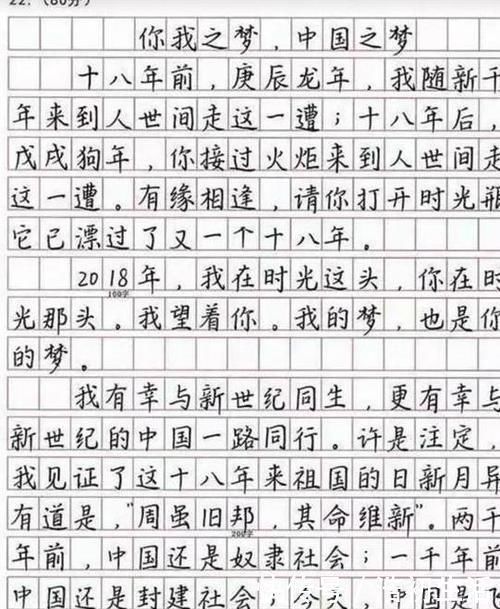 22.（60分）
你我之梦，中国之梦
十八年前，庚辰龙年，我随新千
年来到人世间走这一遭；十八年后，
戊戌狗年，你接过火炬来到人世间走
这一遭。有缘相逢，请你打开时光瓶
它已漂过了又一个十八年。
2018年，我在时光这头，你在时
100字
光那头。我望着你。我的梦，也是你
的梦。
我有幸与新世纪同生，更有幸与
新世纪的中国一路同行。许是注定，
我见证了这十八年来祖国的日新月异
有道是，"周虽旧邦，其命维新"。两千
200字
年前，中国还是奴隶社会；一千年前
中国还是封建社会；今天，中国